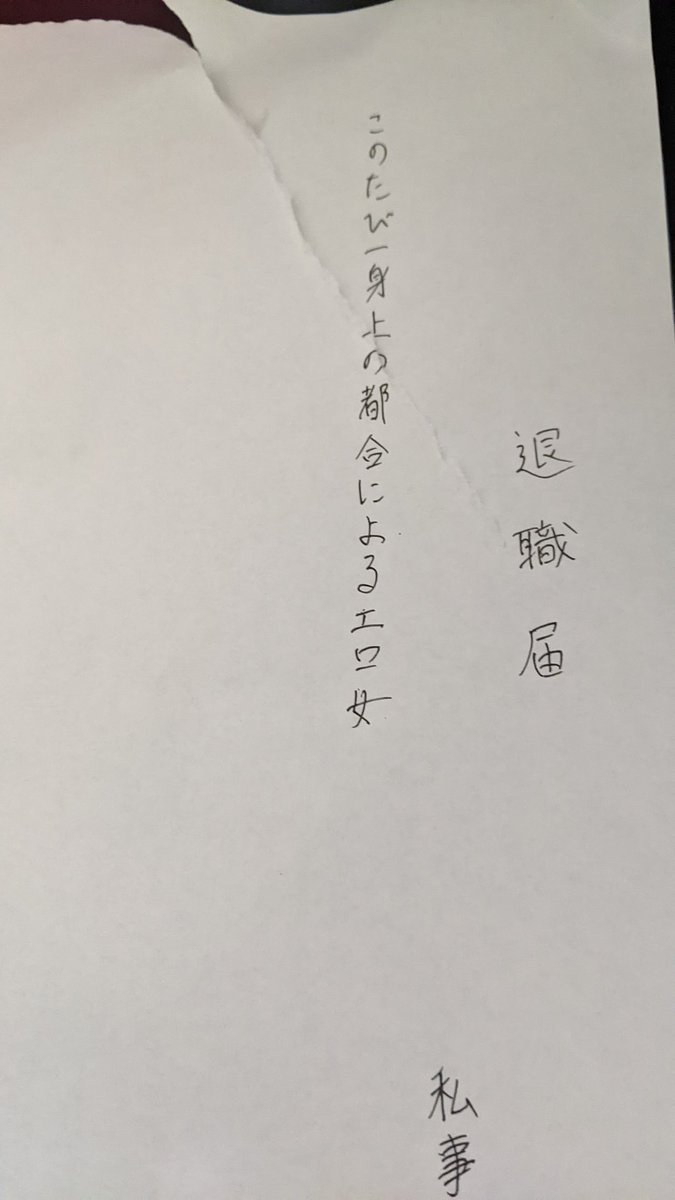 退職届
私事
このたび一身上の都合によるエロ女